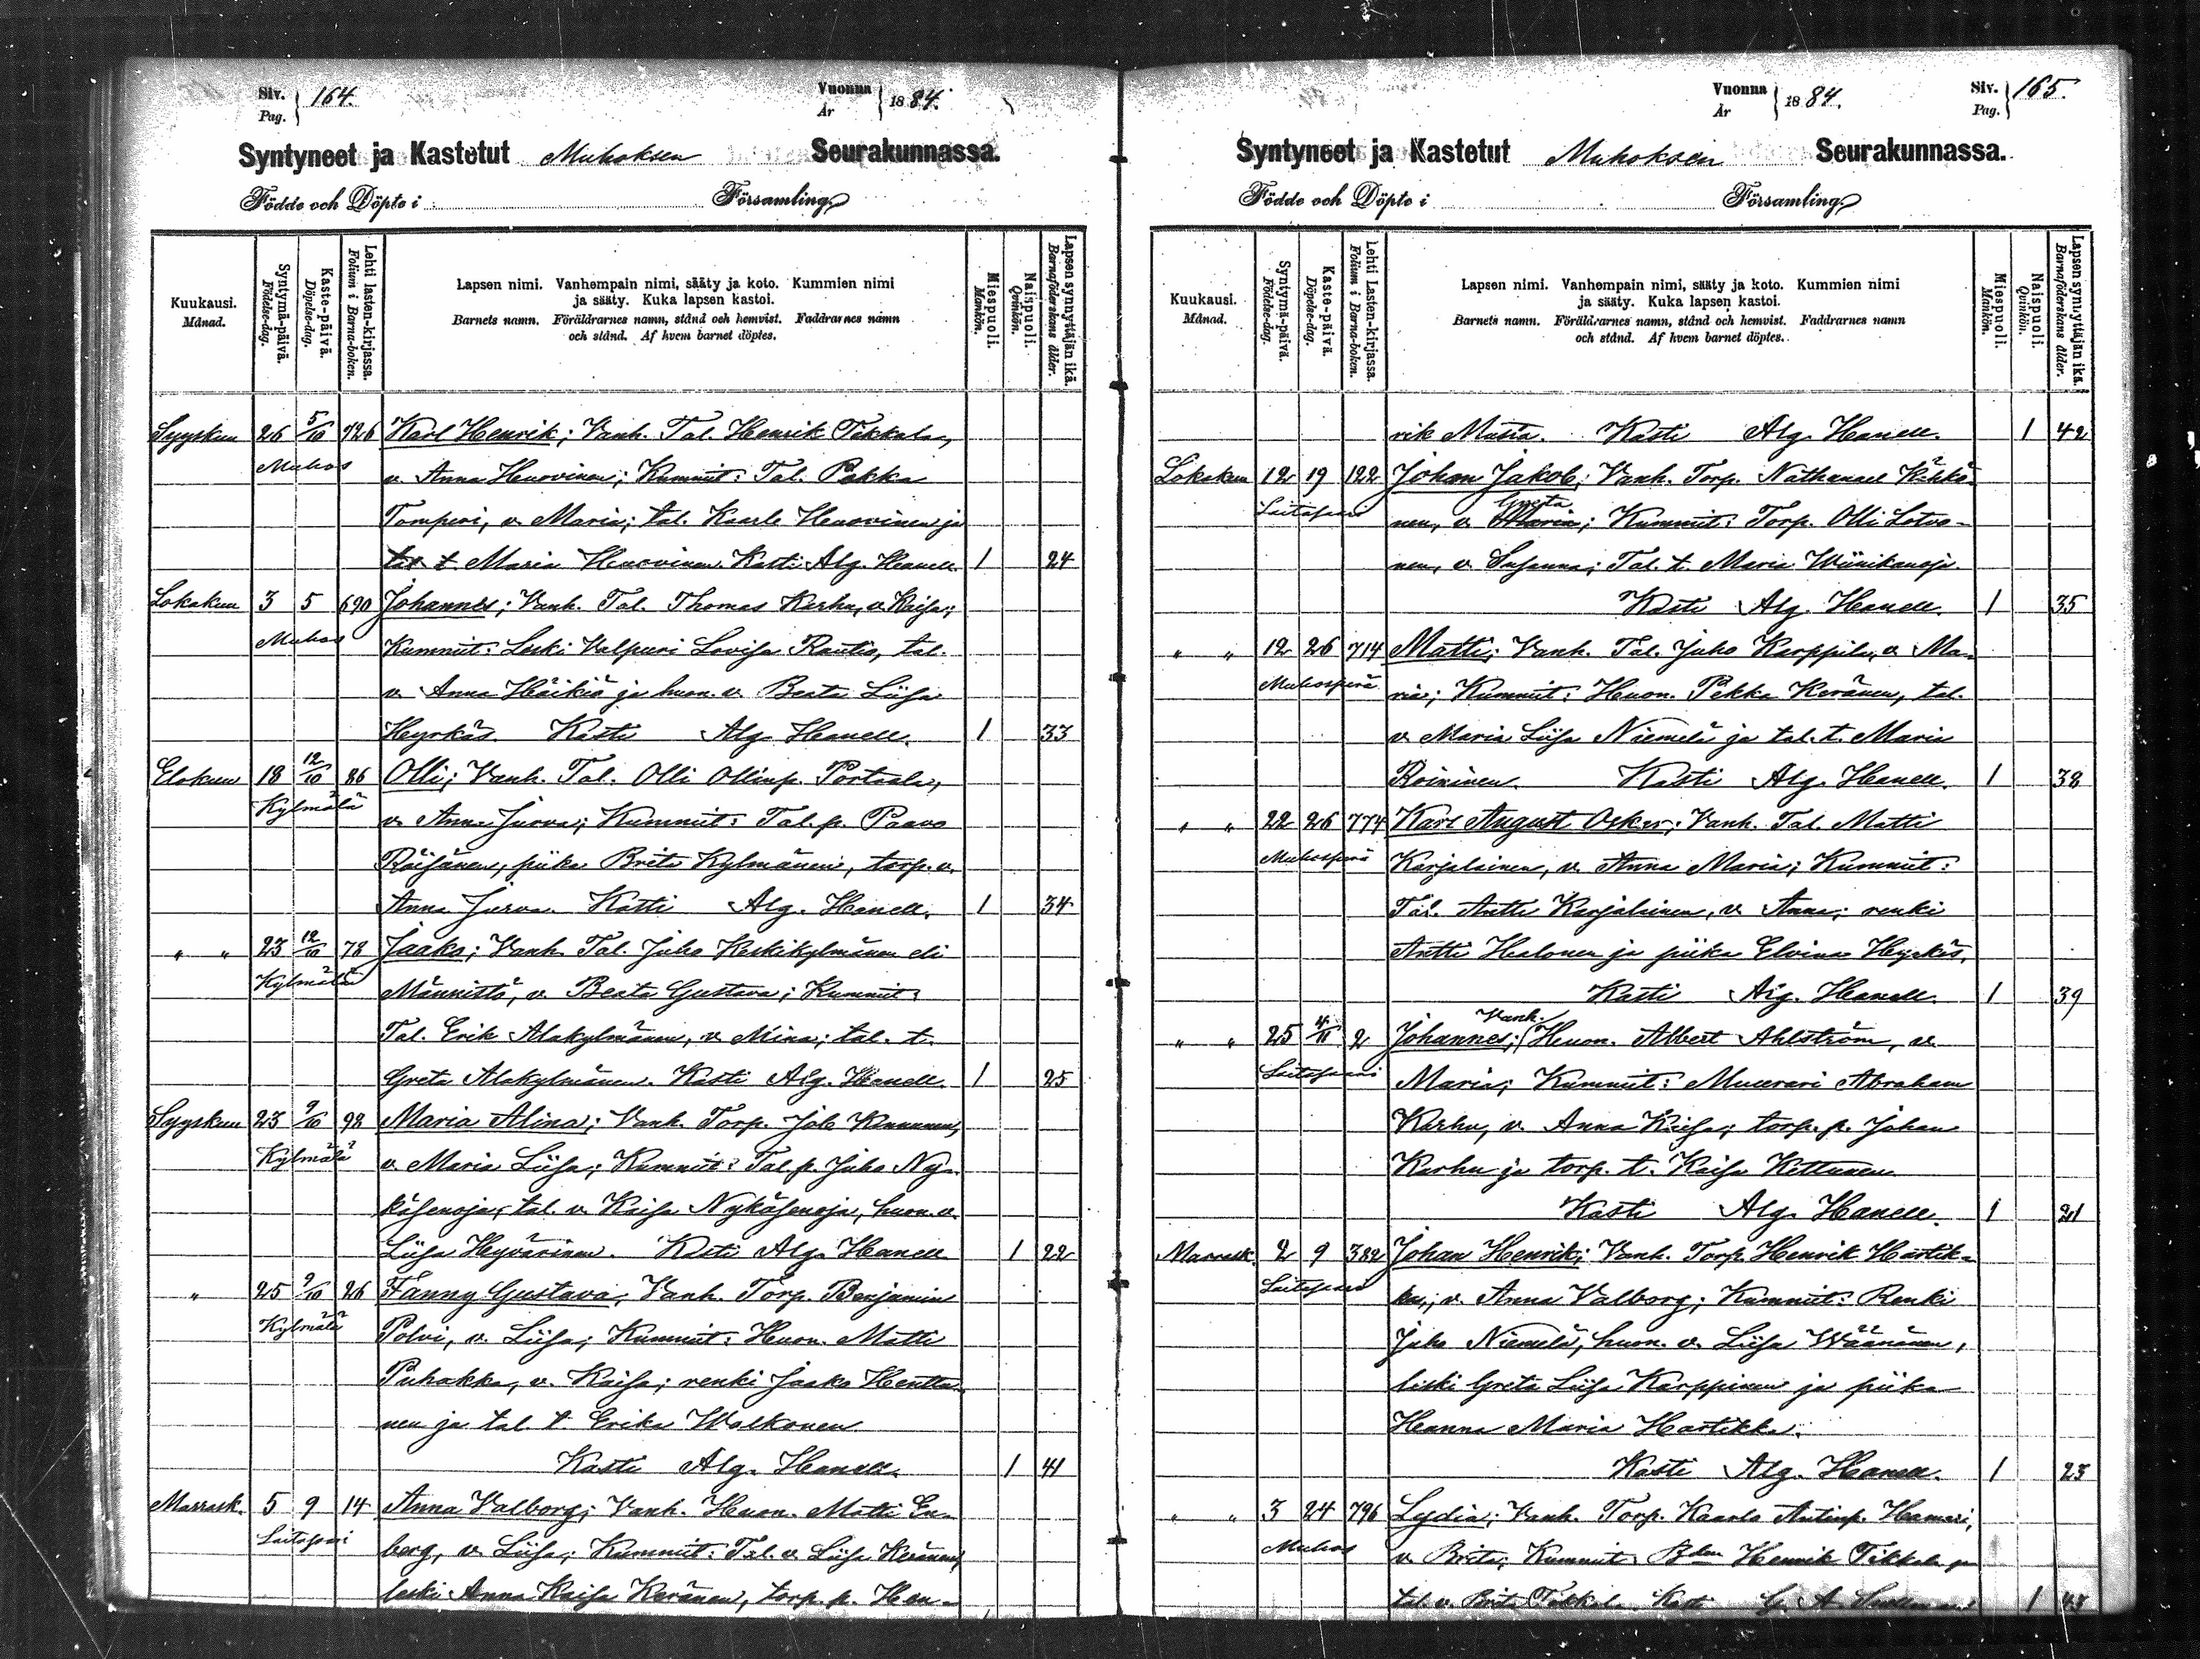 Siv. Pag. 164. Vuonna År 1884.
Syntyneet ja Kastetut Muhoksen Seurakunnassa.
Födde och Döpte i Församling
Kuukausi. Månad.
Syntymä-päivä. Födelse-dag.
Kaste-päivä. Döpelse-dag.
Lehti lasten-kirjassa. Folium i Barna-boken.
Lapsen nimi. Vanhempain nimi, sääty ja koto. Kummien nimi
ja sääty. Kuka lapsen kastoi.
Barnets namn. Föräldrarnes namn, stånd och hemvist. Faddrarnes namn
och stånd. Af hvem barnet döptes.
Miespuoli. Mankön.
Naispuoli. Qvinkön.
Lapsen synnyttäjän ikä. Barnaföderskans ålder.
Syyskuu 26 5/10 726 Karl Henrik; Vanh. Tal. Henrik Tikkala,
Muhos v. Anna Huovinen; Kummit: Tal. Pekka
Tomperi, v. Maria; tal. Kaarle Huovinen ja
t. Maria Huovinen. Kasti Alg. Hanell. 1 24
Lokakuu 3 5 690 Johannes; Vanh. Tal. Thomas Karhu, v. Kaisa;
Muhos Kummit: Leski Valpuri Lovisa Rautio, tal.
v. Anna Häikiö ja huon. v. Beata Liisa
Hyrkäs. Kasti Alg. Hanell. 1 33
Elokuu 18 12/10 86 Olli; Vanh. Tal. Olli Ollinp. Portaala,
Kylmälä v. Anna Jurva; Kummit: Tal. p. Paavo
Räisänen, piika Brita Kylmänen, torp. v.
Anna Jurva. Kasti Alg. Hanell. 1 34
" " 23 12/10 78 Jaako; Vanh. Tal. Juho Keskikylmänen eli
Kylmälä Männistö, v. Beata Gustava; Kummit:
Tal. Erik Alakylmänen, v. Mina; tal. t.
Greta Alakylmänen. Kasti Alg. Hanell. 1 25
Syyskuu 23 9/10 92 Maria Alina; Vanh. Torp. Job Kinnunen,
Kylmälä v. Maria Liisa; Kummit: Tal. p. Juho Ny-
käsenoja, tal. v. Kaisa Nykäsenoja, huon. v.
Liisa Hyvärinen. Kasti Alg. Hanell 1 22
" 25 9/10 26 Fanny Gustava; Vanh. Torp. Benjamin
Kylmälä Polvi, v. Liisa; Kummit: Huon. Matti
Puhakka, v. Kaisa; renki Jaako Hentta-
nen ja tal. t. Erika Walkonen.
Kasti Alg. Hanell. 1 41
Marrask. 5 9 14 Anna Valborg; Vanh. Huon. Matti En-
Laitasaari berg, v. Liisa; Kummit: Tal. v. Liisa Keränen,
leski Anna Kaisa Keränen, torp. p. Hen-
Vuonna År 1884. Siv. Pag. 165.
Syntyneet ja Kastetut Muhoksen Seurakunnassa.
Födde och Döpte i Församling
Kuukausi. Månad.
Syntymä-päivä. Födelse-dag.
Kaste-päivä. Döpelse-dag.
Lehti Lasten-kirjassa. Folium i Barna-boken.
Lapsen nimi. Vanhempain nimi, sääty ja koto. Kummien nimi
ja sääty. Kuka lapsen kastoi.
Barnets namn. Föräldrarnes namn, stånd och hemvist. Faddrarnes namn
och stånd. Af hvem barnet döptes.
Miespuoli. Mankön.
Naispuoli. Qvinkön.
Lapsen synnyttäjän ikä. Barnaföderskans ålder.
rik Musta. Kasti Alg. Hanell. 1 42
Lokakuu 12 19 122 Johan Jakob; Vanh. Torp. Nathanael Kähkö-
Laitasaari nen, v. Maria Greta; Kummit: Torp. Olli Lotvo-
nen, v. Susanna; Tal. t. Maria Wiinikanoja.
Kasti Alg. Hanell. 1 35
" " 12 26 714 Matti; Vanh. Tal. Juho Karppila, v. Ma-
Muhosperä ria; Kummit: Huon. Pekka Keränen, tal.
v. Maria Liisa Niemelä ja tal. t. Maria
Roininen. Kasti Alg. Hanell. 1 38
" " 22 26 774 Karl August Oskar; Vanh. Tal. Matti
Muhosperä Karjalainen, v. Anna Maria; Kummit:
Tal. Antti Karjalainen, v. Anna; renki
Antti Halonen ja piika Elvina Hyrkäs.
Kasti Alg. Hanell. 1 39
" " 25 4/11 2 Johannes; Vanh. Huon. Albert Ahlström, v.
Laitasaari Maria; Kummit: Muurari Abraham
Karhu, v. Anna Kaisa; torp. p. Johan
Karhu ja torp. t. Kaisa Kettunen
Kasti Alg. Hanell. 1 21
Marrask. 2 9 382 Johan Henrik; Vanh. Torp. Henrik Hartik-
Laitasaari ka, v. Anna Valborg; Kummit: Renki
Juho Niemelä, huon. v. Liisa Väänänen,
leski Greta Liisa Karppinen ja piika
Hanna Maria Hartikka.
Kasti Alg. Hanell. 1 23
" " 3 24 796 Lydia; Vanh. Torp. Kaarlo Antinp. Hamari,
Muhos v. Brita; Kummit: Henrik Tikkala ja
tal. v. Brita Tikkala. Kasti G. A. 1